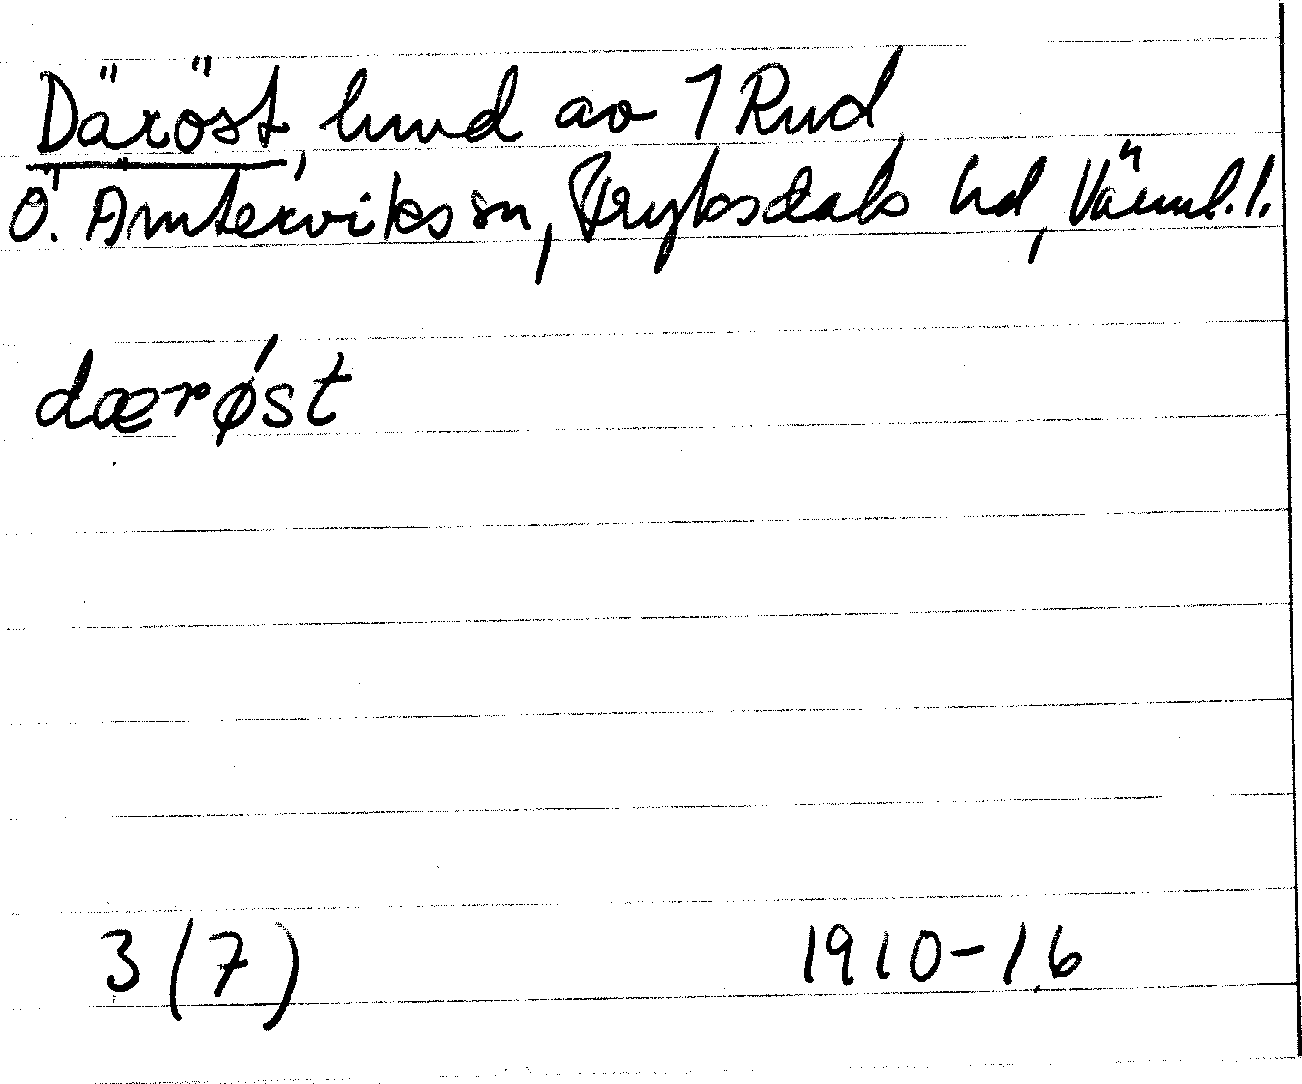 Däröst, lund av 1 Rud
Ö. Ämterviks sn, Fryksdals hd, Värml. l.
dærǿst
3 (7) 1910-16